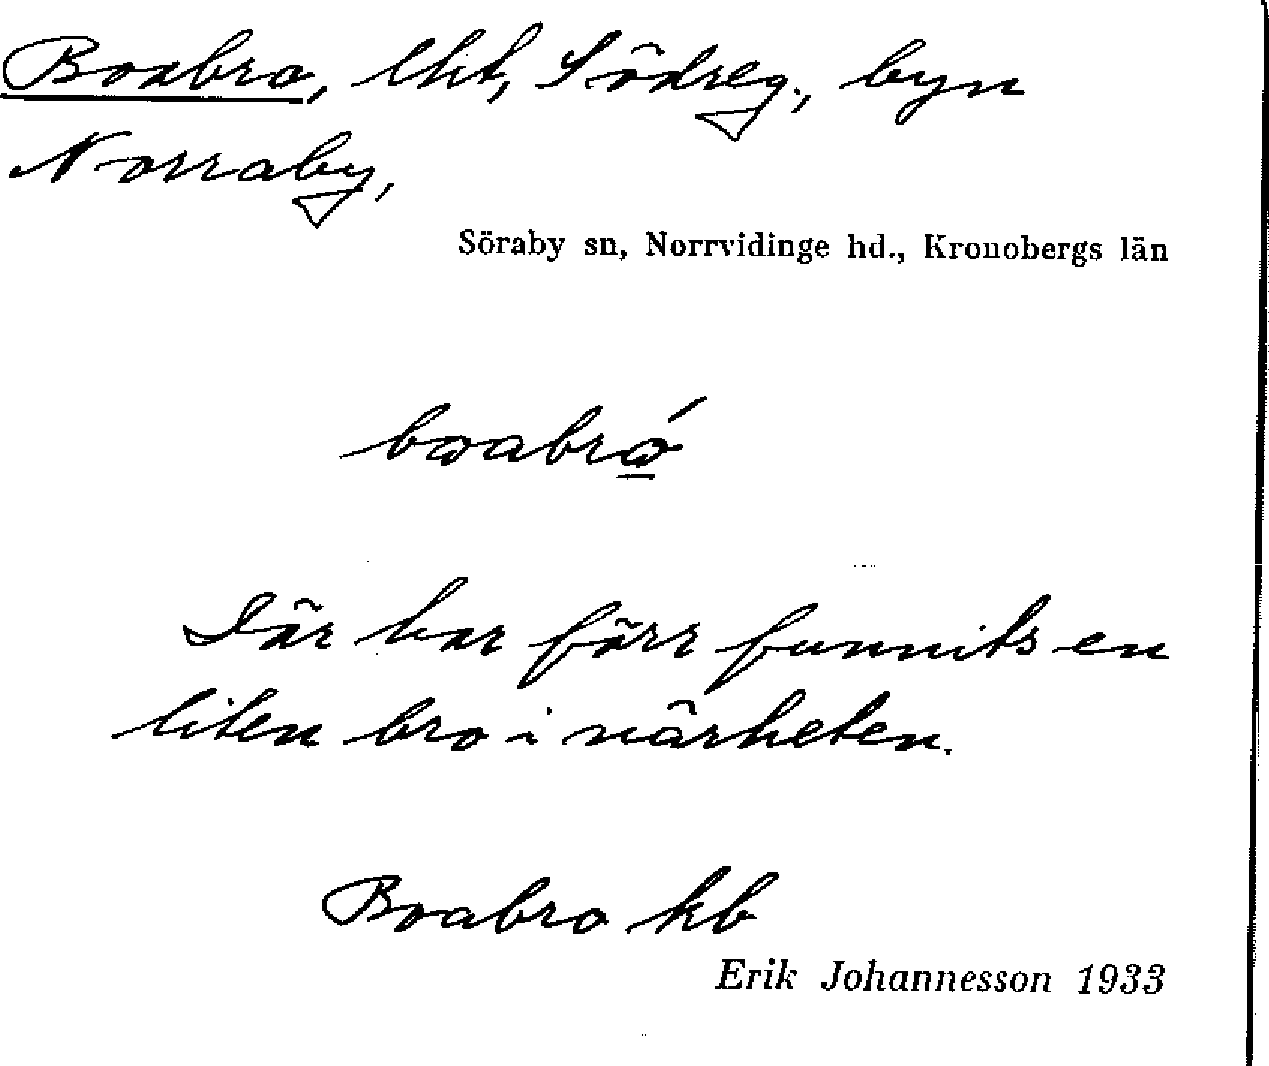 Boabro, lht, Södreg., byn
Norraby,
Söraby sn, Norrvidinge hd., Kronobergs län
boabro̲ ́
Där har förr funnits en
liten bro i närheten.
Boabro kb
Erik Johannesson 1933